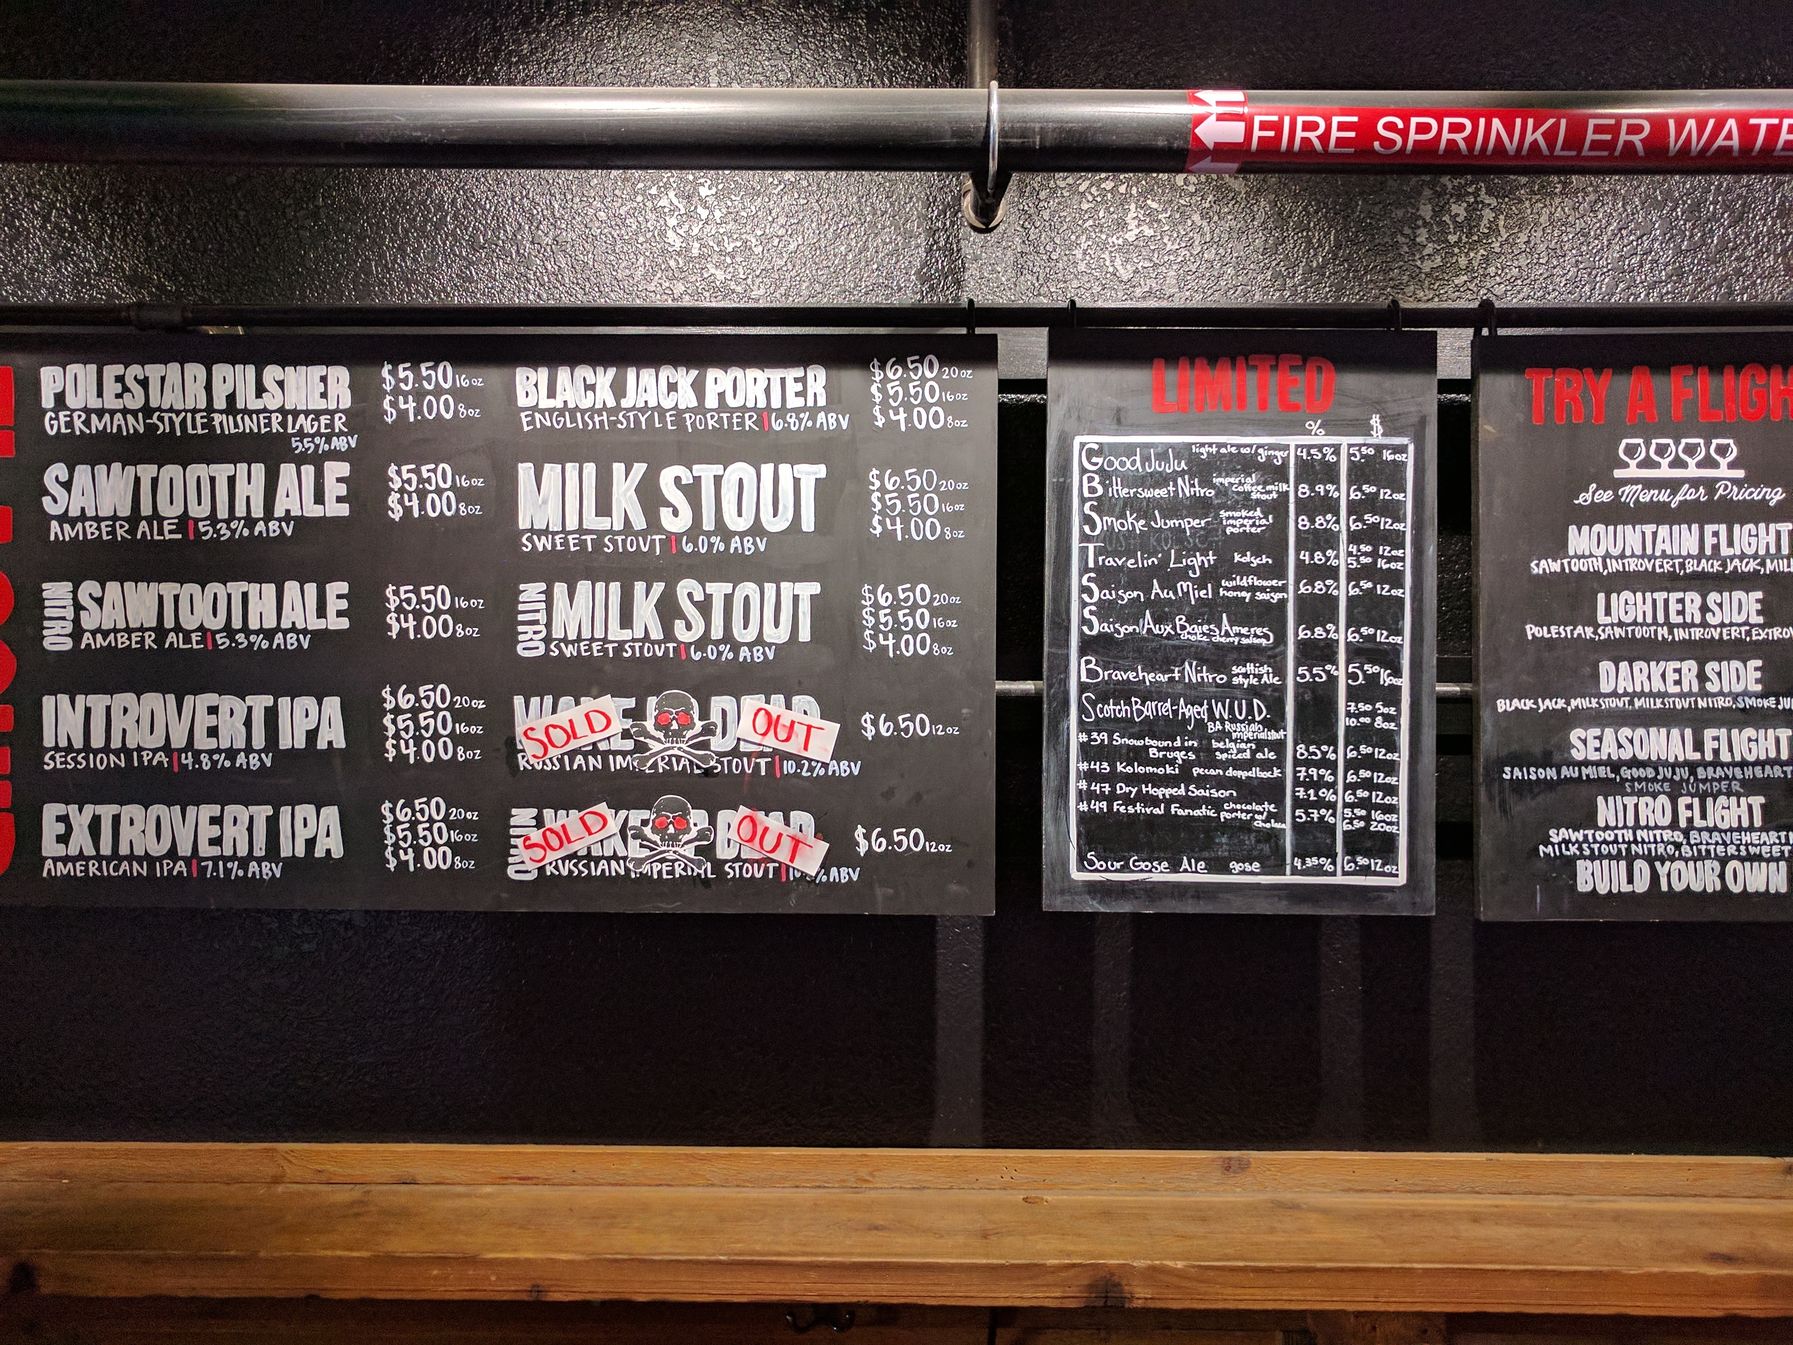 FIRE SPRINKLER WATE
POLESTAR PILSNER
GERMAN-STYLE PILSNER LAGER
5.5% ABV
$5.50 16oz
$4.00 8oz
SAWTOOTH ALE
AMBER ALE | 5.3% ABV
$5.50 16oz
$4.00 8oz
NITRO SAWTOOTH ALE
AMBER ALE | 5.3% ABV
$5.50 16oz
$4.00 8oz
INTROVERT IPA
SESSION IPA | 4.8% ABV
$6.50 20oz
$5.50 16oz
$4.00 8oz
EXTROVERT IPA
AMERICAN IPA | 7.1% ABV
$6.50 20oz
$5.50 16oz
$4.00 8oz
BLACK JACK PORTER
ENGLISH-STYLE PORTER | 6.8% ABV
$6.50 20oz
$5.50 16oz
$4.00 8oz
MILK STOUT
SWEET STOUT | 6.0% ABV
$6.50 20oz
$5.50 16oz
$4.00 8oz
NITRO MILK STOUT
SWEET STOUT | 6.0% ABV
$6.50 20oz
$5.50 16oz
$4.00 8oz
SOLD OUT
RUSSIAN IMPERIAL STOUT | 10.2% ABV
$6.50 12oz
SOLD OUT
RUSSIAN IMPERIAL STOUT
ABV
$6.50 12oz
LIMITED
% $
Good JuJu light ale w/ ginger 4.5% 5.50 16oz
Bittersweet Nitro imperial coffee milk stout 8.9% 6.50 12oz
Smoke Jumper smoked imperial porter 8.8% 6.50 12oz
Travelin' Light Kolsch 4.8% 4.50 12oz
5.50 16oz
Saison Au Miel wildflower honey saison 6.8% 6.50 12oz
Saison Aux Baies Ameres 6.8% 6.50 12oz
choke cherry saison
Braveheart Nitro scottish style Ale 5.5% 5.50 16oz
Scotch Barrel-Aged W.U.D. 7.50 5oz
BA Russian imperial stout 10.00 8oz
#39 Snowbound in Bruges belgian spiced ale 8.5% 6.50 12oz
#43 Kolomoki pecan doppelbock 7.9% 6.50 12oz
#47 Dry Hopped Saison 7.1% 6.50 12oz
#49 Festival Fanatic chocolate porter w/ 5.7% 5.50 16oz
6.50 20oz
Sour Gose Ale gose 4.35% 6.50 12oz
TRY A FLIGH
See Menu for Pricing
MOUNTAIN FLIGHT
SAWTOOTH, INTROVERT, BLACK JACK, MIL
LIGHTER SIDE
POLESTAR, SAWTOOTH, INTROVERT, EXTROV
DARKER SIDE
BLACK JACK, MILK STOUT, MILK STOUT NITRO, SMOKE JU
SEASONAL FLIGHT
SAISON AU MIEL, GOOD JUJU, BRAVEHEART
SMOKE JUMPER
NITRO FLIGHT
SAWTOOTH NITRO, BRAVEHEART
MILK STOUT NITRO, BITTERSWEET
BUILD YOUR OWN